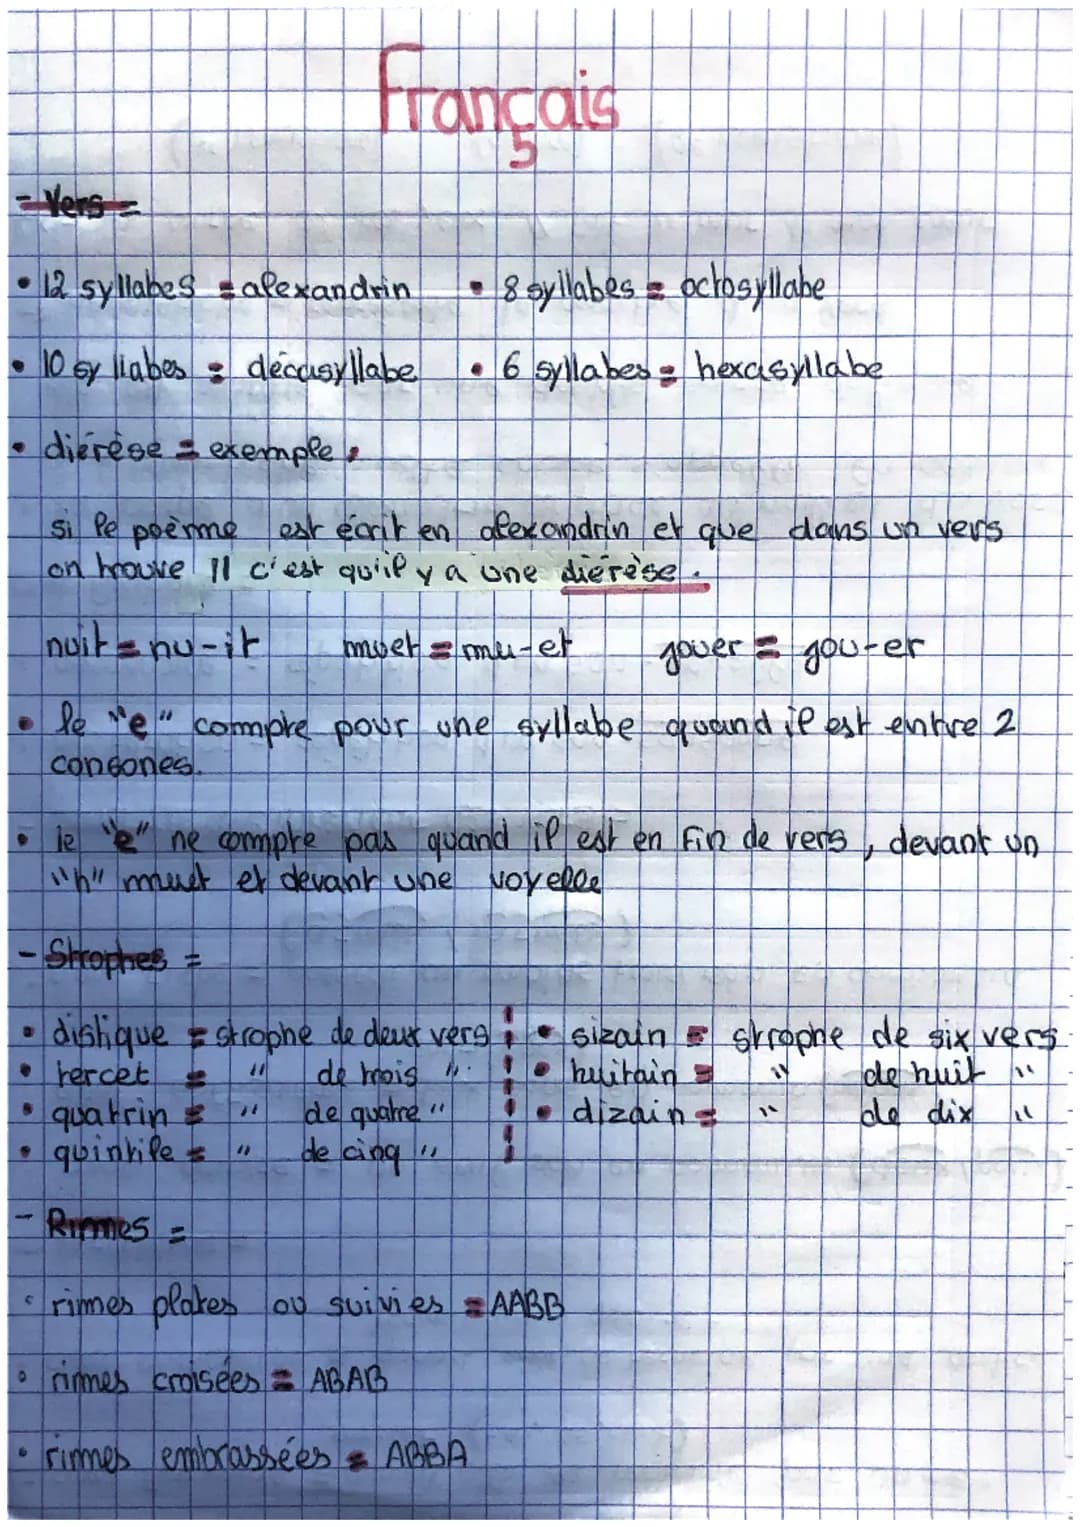 Français
- Vers =
• 12 syllabes = alexandrin • 8 syllabes = octosyllabe
• 10 syllabes = décasyllabe • 6 syllabes = hexasyllabe
• diérèse = exemple :
si le poèrme est écrit en alexandrin et que dans un vers
on trouve 11 c'est qu'il y a une diérèse.
nuit = nu-it muet = mu-et jouer = jou-er
• le "e" compte pour une syllabe quand il est entre 2
consones.
• le "e" ne compte pas quand il est en fin de vers, devant un
"h" muet et devant une voyelle
- Strophes =
• distique = strophe de deux vers • sizain = strophe de six vers
• tercet = " de trois " • huitain = " de huit "
• quatrin = " de quatre " • dizain = " de dix "
• quintile = " de cinq "
- Rimes =
• rimes plates ou suivies = AABB
• rimes croisées = ABAB
• rimes embrassées = ABBA